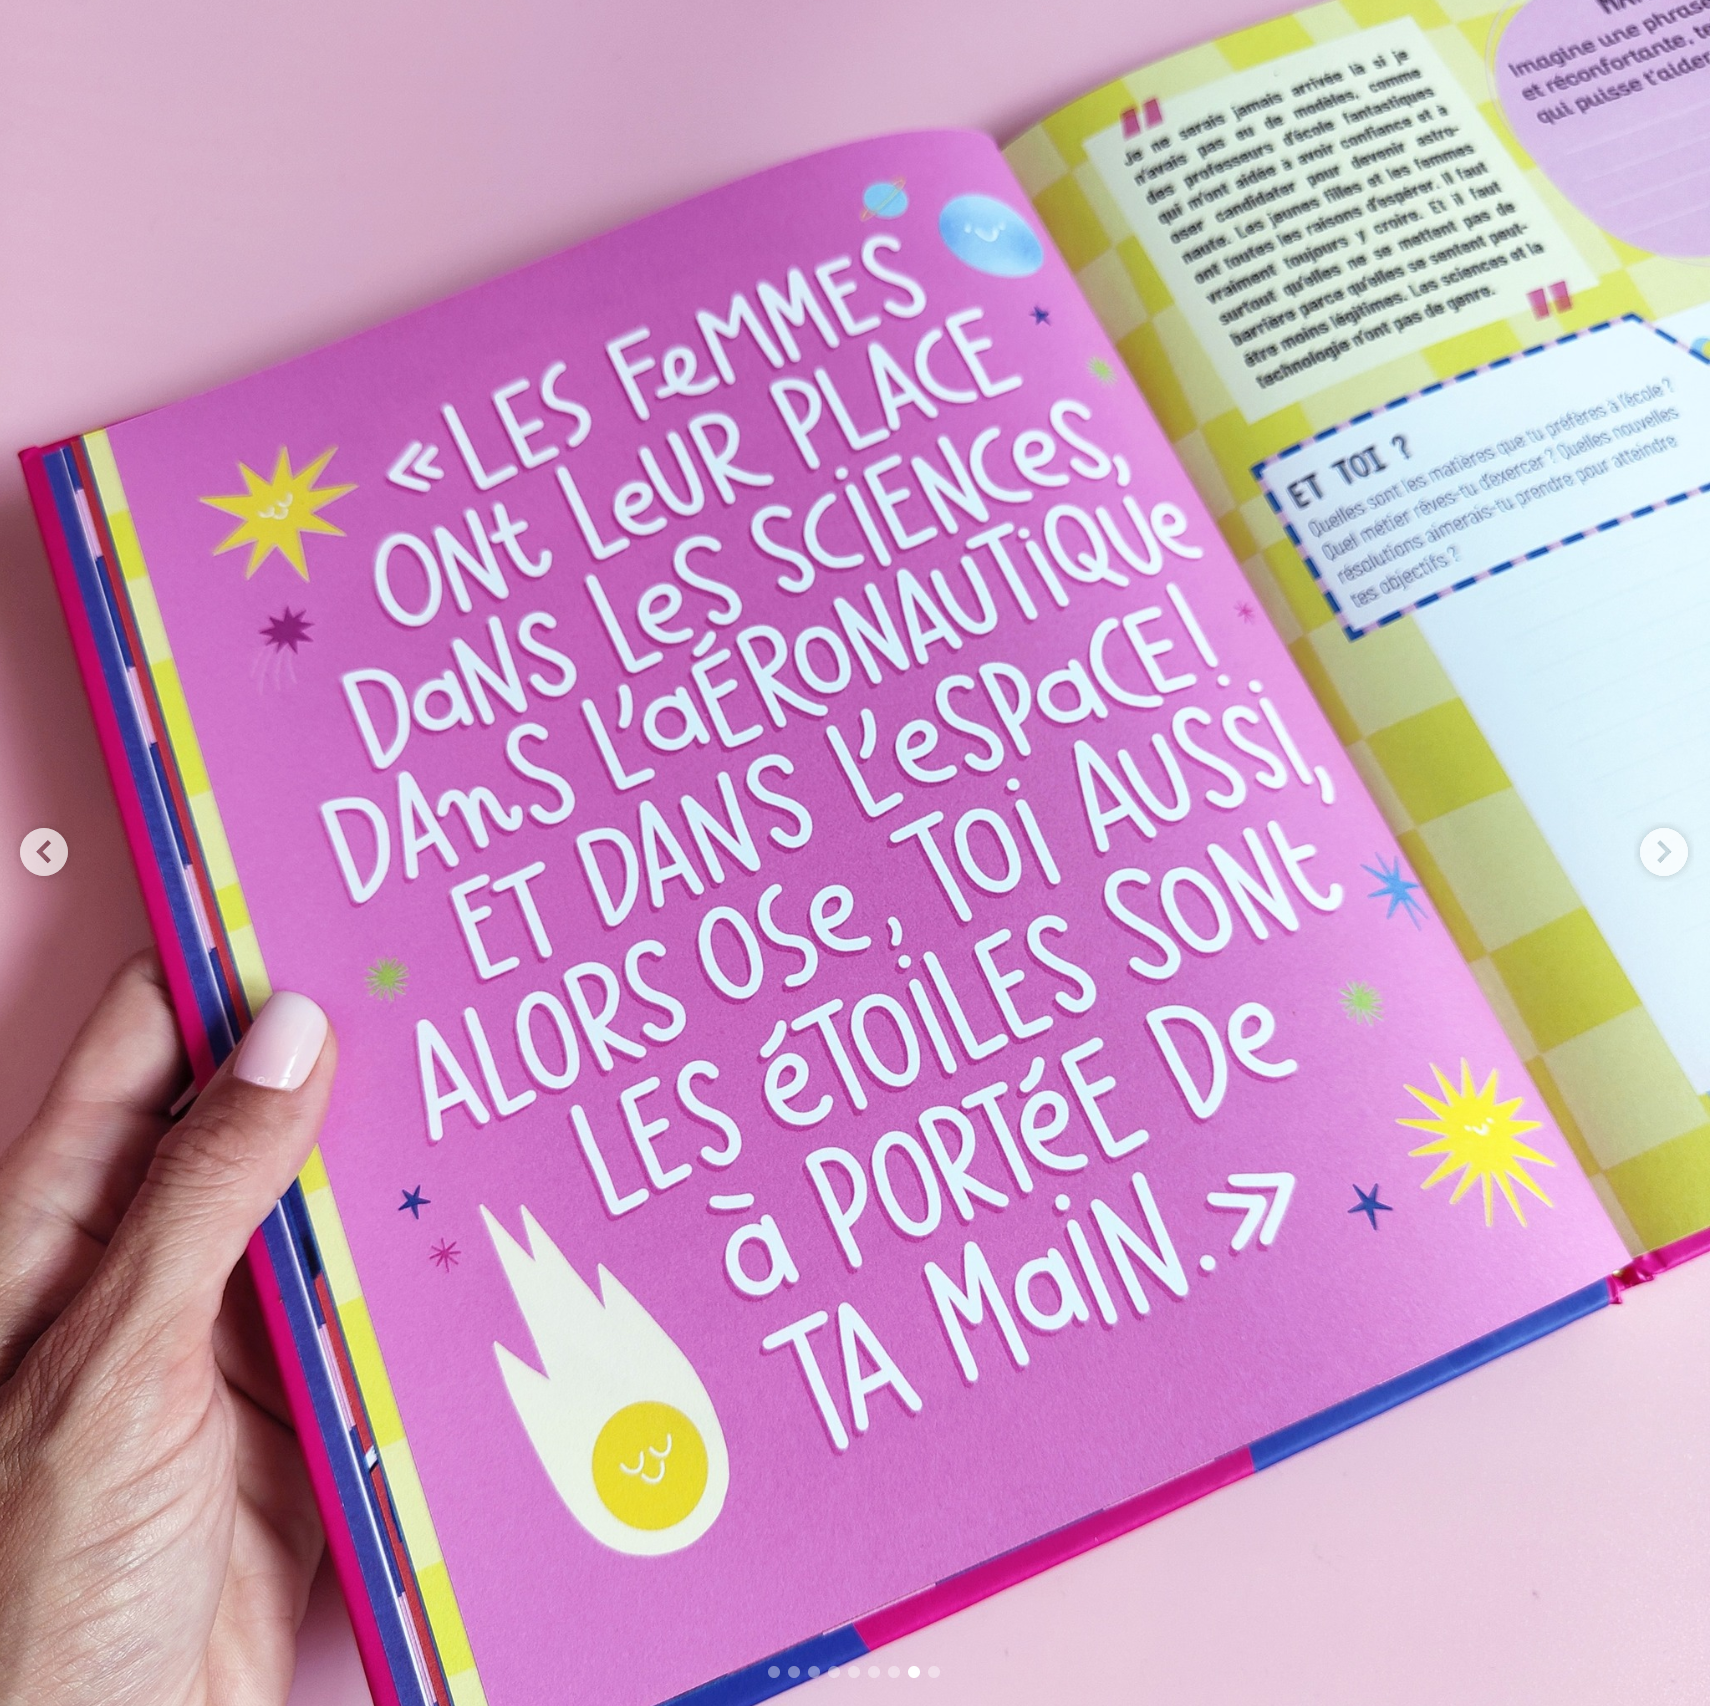 « LES FeMMES
ONt LeUR PLACE
DaNS LeS SCiENCeS,
DAnS L'aÉRoNAUTiQUe
ET DANS L'eSPaCE!
ALORS OSe, TOi AUSSi,
LES éTOiLES SONt
à PORTéE De
TA MaiN. »
"
Je ne serais jamais arrivée là si je
n'avais pas eu de modèles, comme
des professeurs d'école fantastiques
qui m'ont aidée à avoir confiance et à
oser candidater pour devenir astro-
naute. Les jeunes filles et les femmes
ont toutes les raisons d'espérer. Il faut
vraiment toujours y croire. Et il faut
surtout qu'elles ne se mettent pas de
barrière parce qu'elles se sentent peut-
être moins légitimes. Les sciences et la
technologie n'ont pas de genre.
"
Imagine une phrase
et réconfortante,
qui puisse t'aider
ET TOI ?
Quelles sont les matières que tu préfères à l'école ?
Quel métier rêves-tu d'exercer ? Quelles nouvelles
résolutions aimerais-tu prendre pour atteindre
tes objectifs ?